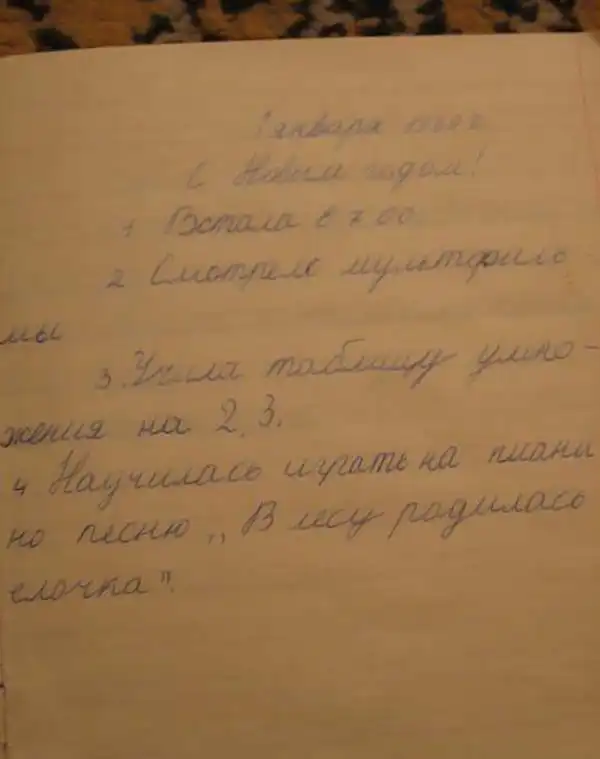 1 января
С Новым годом!
1 Встала в 7 00
2 Смотрела мультфиль
мы
3. Учила таблицу умно-
жения на 2, 3.
4 Научилась играть на пиани
но песню „В лесу родилась
елочка".